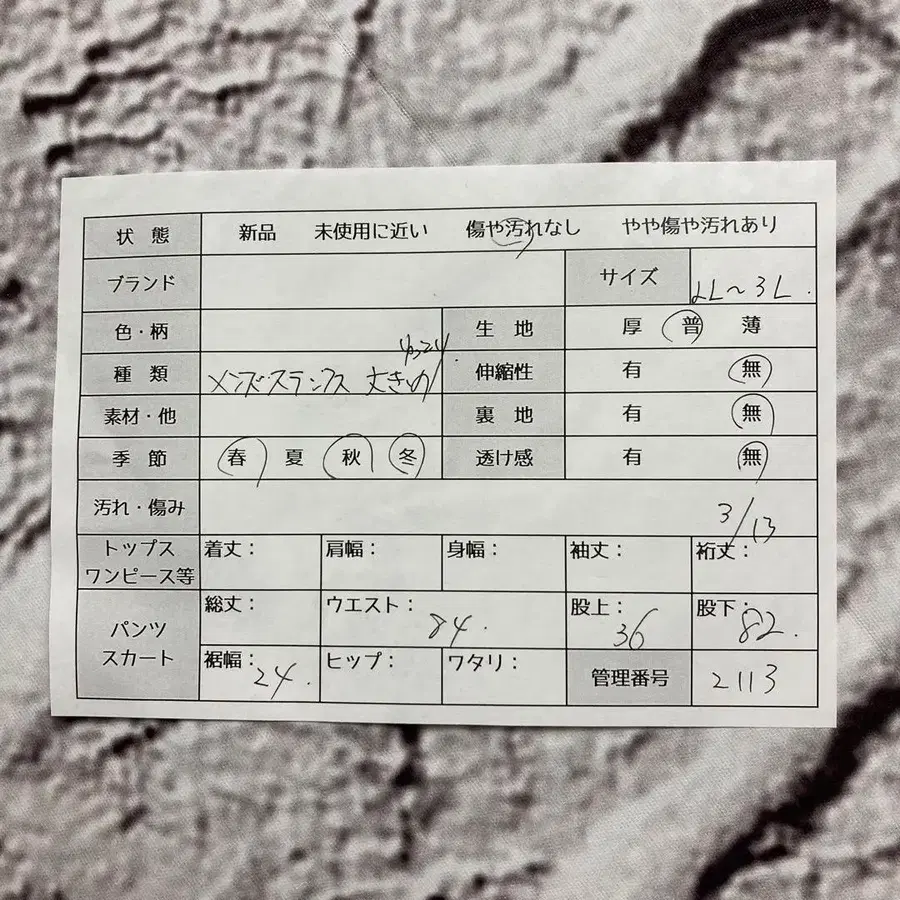 状態 新品 未使用に近い 傷や汚れなし やや傷や汚れあり
ブランド サイズ LL～3L.
色・柄 生地 厚 普 薄
ゆったり
種類 メンズ・スラックス 大きめ 伸縮性 有 無
素材・他 裏地 有 無
季節 春 夏 秋 冬 透け感 有 無
汚れ・傷み 3/13
トップス ワンピース等 着丈： 肩幅： 身幅： 袖丈： 裄丈：
パンツ スカート 総丈： ウエスト： 84. 股上： 36 股下： 82.
裾幅： 24. ヒップ： ワタリ： 管理番号 2113